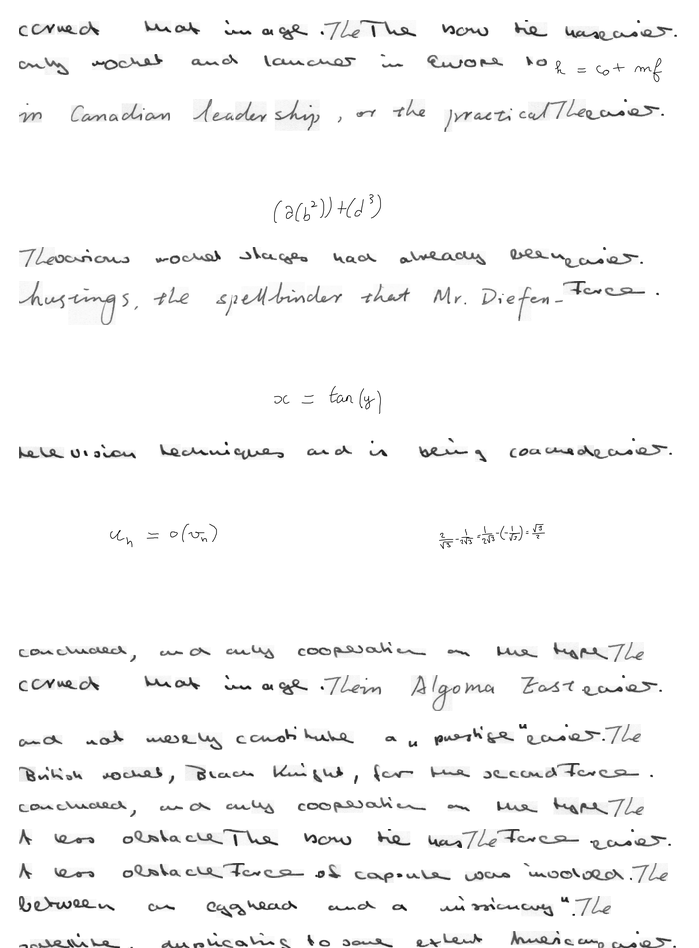 corned that image. The The bow tie has easier.
only rocket and launcher in Europe to h = c₀ + mf
in Canadian leadership, or the practical The easier.
(a(b²))+(d³)
The various rocket stages had already been easier.
hustings, the spellbinder that Mr. Diefen- Force.
x = tan(y)
television techniques and is being coached easier.
uₙ = o(vₙ) 2/√3 - 1/2√3 = 1/2√3 - (-1/√3) = √3/2
concluded, and only cooperation on the type The
corned that image. The in Algoma East easier.
and not merely constitute a "prestige" easier. The
British rocket, Black Knight, for the second Force.
concluded, and only cooperation on the type The
A less obstacle The bow tie has The Force easier.
A less obstacle Force of capsule was involved. The
between an egghead and a missionary". The
satellite, duplicating to some extent American easier.